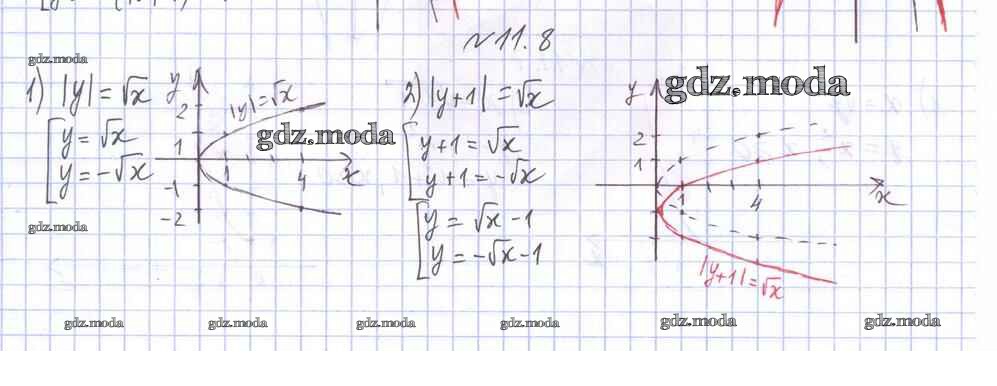 №11.8
gdz.moda
1) |y| = √x
[ y = √x
y = -√x
y
2
1
-1
-2
1
4
x
|y| = √x
gdz.moda
gdz.moda
2) |y+1| = √x
[ y+1 = √x
y+1 = -√x
[ y = √x - 1
y = -√x - 1
gdz.moda
y
2
1
1
4
x
|y+1| = √x
gdz.moda
gdz.moda
gdz.moda
gdz.moda
gdz.moda
gdz.moda